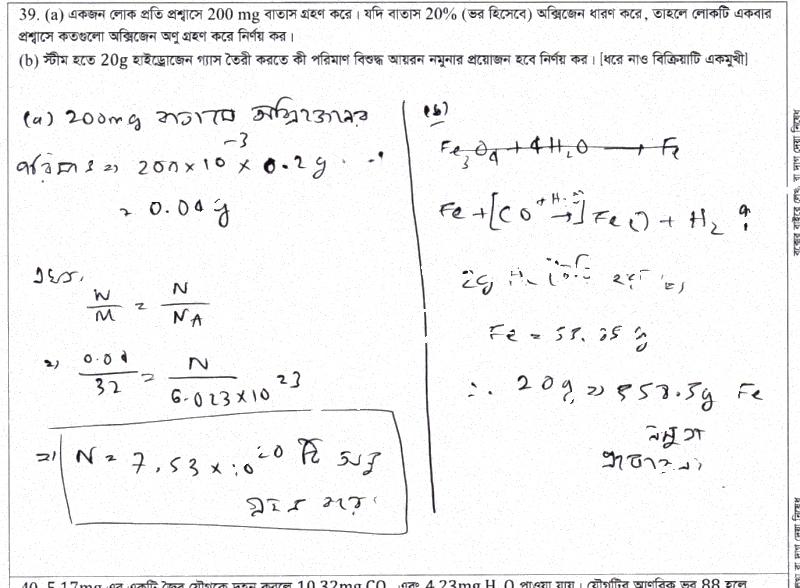 39. (a) একজন লোক প্রতি প্রশ্বাসে 200 mg বাতাস গ্রহণ করে। যদি বাতাস 20% (ভর হিসেবে) অক্সিজেন ধারণ করে, তাহলে লোকটি একবার
প্রশ্বাসে কতগুলো অক্সিজেন অণু গ্রহণ করে নির্ণয় কর।
(b) স্টীম হতে 20g হাইড্রোজেন গ্যাস তৈরী করতে কী পরিমাণ বিশুদ্ধ আয়রন নমুনার প্রয়োজন হবে নির্ণয় কর। [ধরে নাও বিক্রিয়াটি একমুখী]
(a) 200mg বাতাসে অক্সিজেনের
পরিমাণ ⇒ 200 × 10^-3 × 0.2 g
= 0.04 g
এখন,
W/M = N/NA
⇒ 0.04/32 = N/6.023×10^23
⇒ N = 7.53 × 10^20 টি অণু
গ্রহণ করে।
(b)
Fe3O4 + 4H2O → Fe
Fe + [CO →] Fe() + H2 ?
2g H
Fe = 55.85 g
∴ 20g ⇒ 558.5g Fe
নমুনা
প্রয়োজন।
40. 5.17mg এর একটি জৈব যৌগকে দহন করলে 10.32mg CO2 এবং 4.23mg H2O পাওয়া যায়। যৌগটির আণবিক ভর 88 হলে